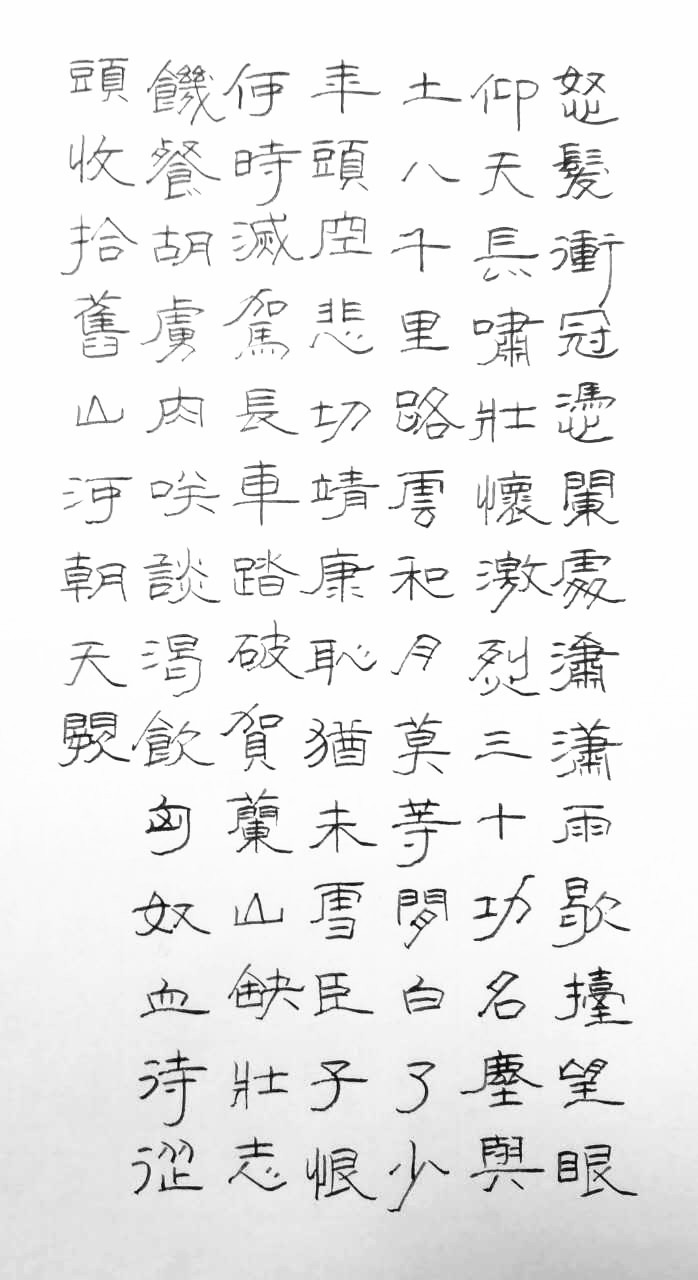 怒髮衝冠憑闌處瀟瀟雨歇擡望眼
仰天長嘯壯懷激烈三十功名塵與
土八千里路雲和月莫等閒白了少
年頭空悲切靖康恥猶未雪臣子恨
何時滅駕長車踏破賀蘭山缺壯志
饑餐胡虜肉咲談渴飲匈奴血待從
頭收拾舊山河朝天闕